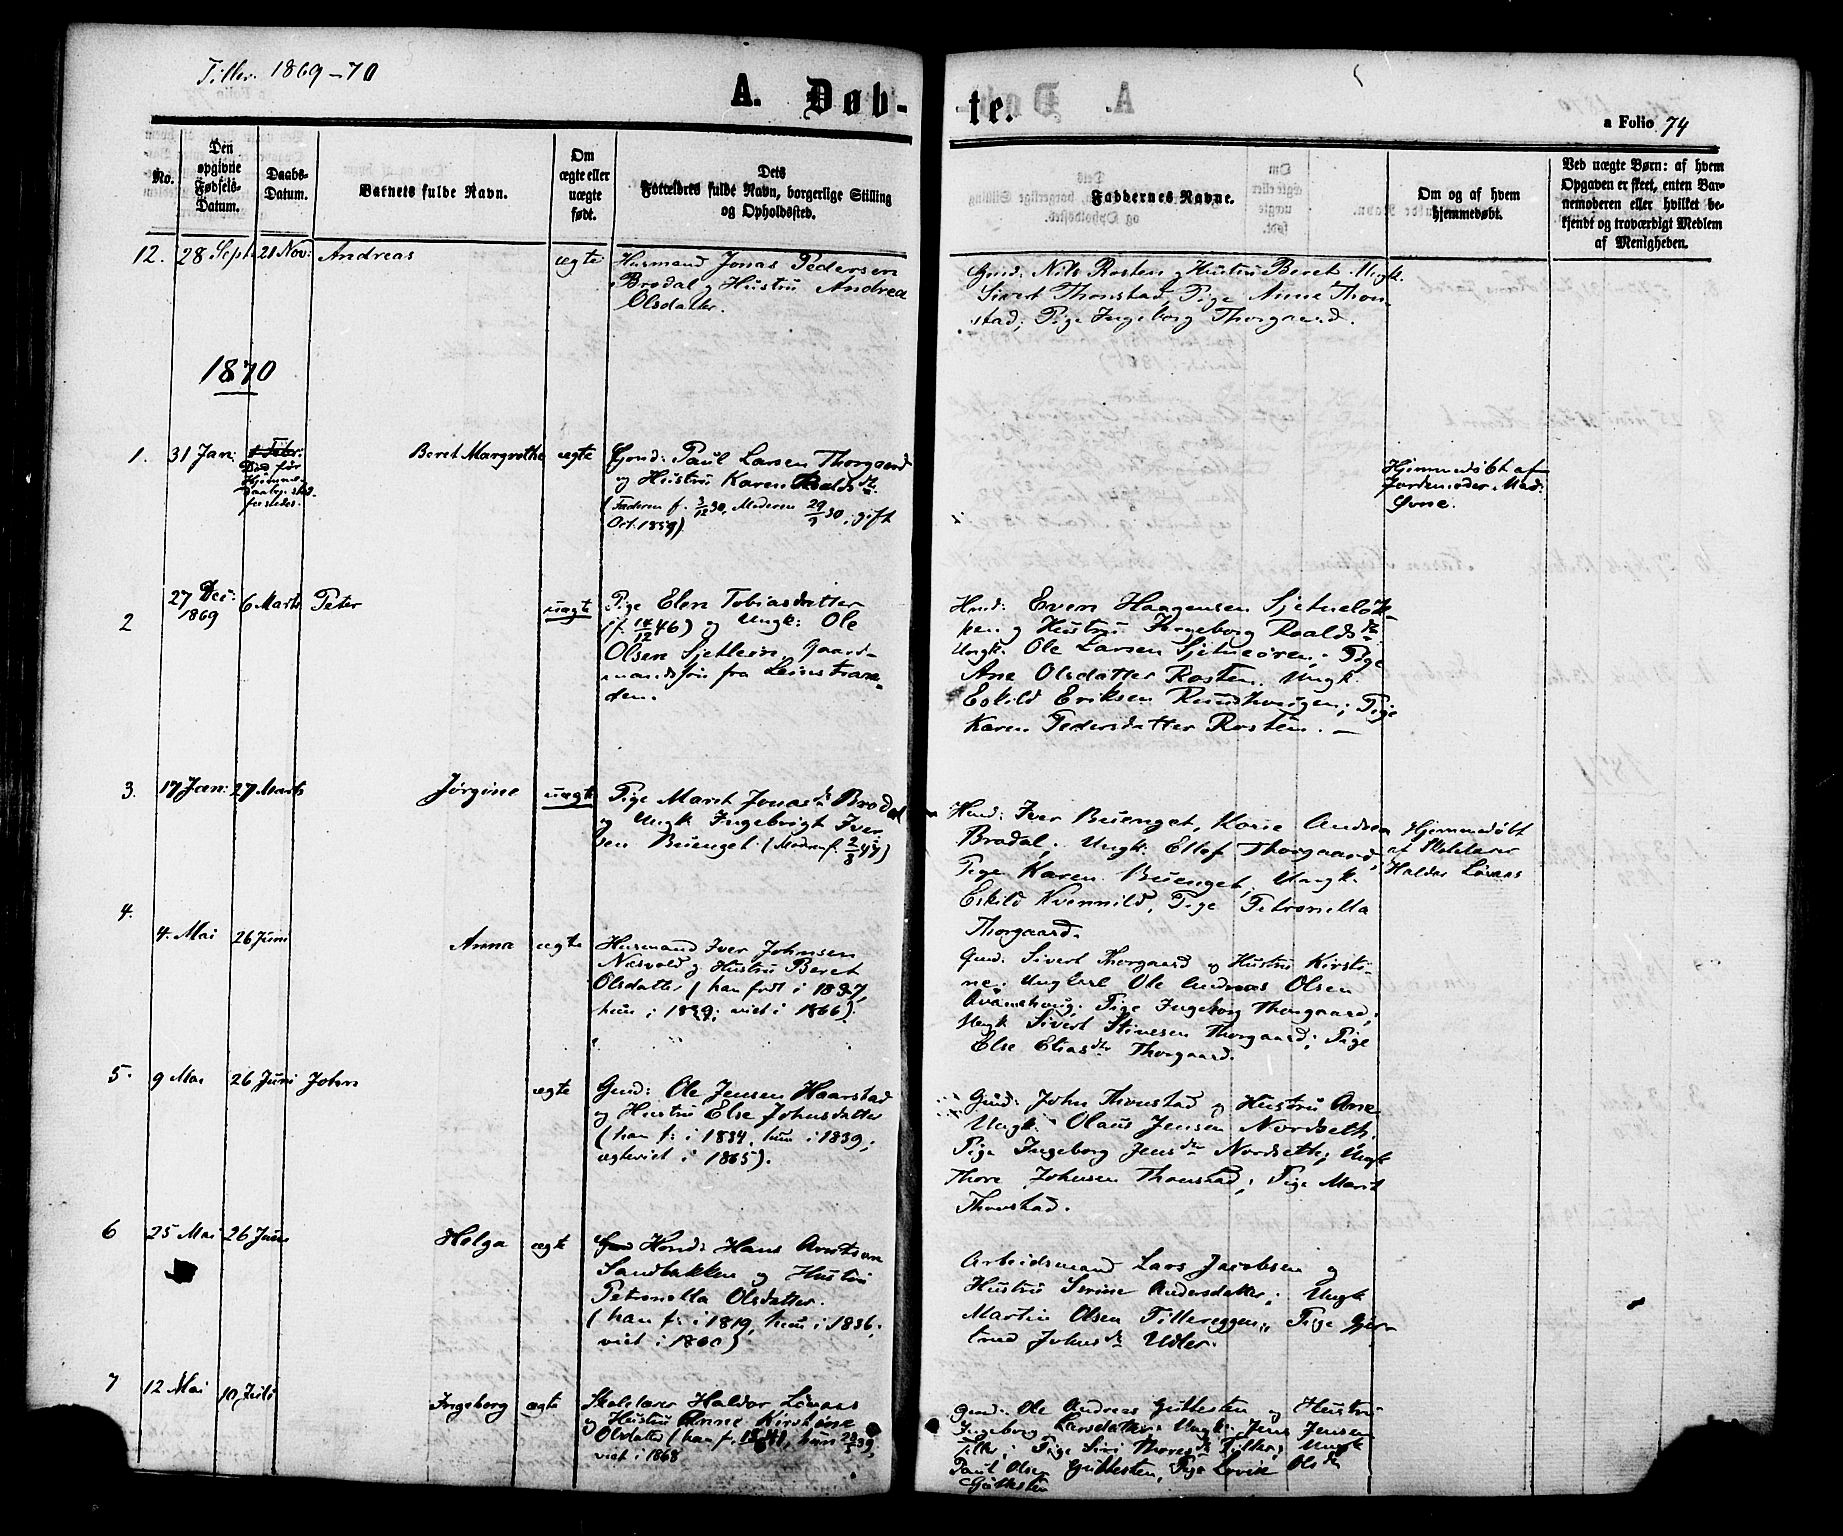 Tiller. 1869-70
A. Døb-
te.
a Folio 74
No.
Den
opgivne
Fødsels-
Datum.
Daabs-
Datum.
Barnets fulde Navn.
Om
ægte eller
uægte
født.
Dets
Forældres fulde Navn, borgerlige Stilling
og Opholdssted.
Faddernes Navne.
Om og af hvem
hjemmedøbt.
Ved uægte Børn: af hvem
Opgaven er skeet, enten Bar-
nemoderen eller hvilket be-
kjendt og troværdigt Medlem
af Menigheden.
12. 28 Sept 21 Nov: Andreas ægte
Husmand Jonas Pedersen
Brødal og Hustru Andrea
Olsdatter.
Gmd: Nils Rosten og Hustru Beret. Ungk.
Sivert Thonstad, Pige Anne Thon-
stad; Pige Ingeborg Thorgaard.
1870
1. 31 Jan: 1 Febr:
Død før
Hjemme-
daaben stad-
fæstedes.
Beret Margrethe ægte
Gmd: Paul Larsen Thorgaard
og Hustru Karen Roaldsdtr.
(Faderen f. 3/12 30, Moderen 29/9 30; gift
Oct. 1859)
Hjemmedøbt af
Jordemoder Mad:
Øvne.
2 27 Dec: 1869 6 Marts Peter uægte
Pige Elen Tobiasdatter
(f. 14/12 46) og Ungk: Ole
Olsen Sjetlein, Gaard-
mandssøn fra Leinstran-
den.
Hmd: Even Haagensen Sjetneløk-
ken og Hustru Ingeborg Roaldsdtr.
Ungk: Ole Larsen Sjetneøren; Pige
Ane Olsdatter Rosten. Ungk.
Eskild Eriksen Rundhaugen; Pige
Karen Pedersdatter Rosten. —
3. 17 Jan: 27 Marts Jørgine uægte
Pige Marit Jonasdtr Brødal
og Ungk Ingebrigt Iver
sen Buenget. (Moderen f. 2/8 47)
Hmd: Iver Buenget, Kone Andrea
Brødal; Ungk: Ellef Thorgaard,
Pige Karen Buenget, Ungk.
Eskild Kvennild, Pige Petronella
Thorgaard.
Hjemmedøbt
af Skolelærer
Haldor Løvaas
4. 4. Mai 26 Juni Anna ægte
Husmand Iver Johnsen
Næsvold og Hustru Beret
Olsdatter (han født i 1837,
hun i 1839; viet i 1866).
Gmd: Sivert Thorgaard og Hustru Kirsti-
ne. Ungkarl Ole Andreas Olsen
Kvamshaug; Pige Ingeborg Thorgaard;
Ungk Sivert Stinesen Thorgaard; Pige
Else Eliasdtr Thorgaard.
5. 9 Mai 26 Juni John ægte
Gmd: Ole Jensen Haarstad
og Hustru Else Johnsdatter
(han f. i 1834, hun i 1839;
ægteviet i 1865).
Gmd: John Thonstad og Hustru Ane
Ungk: Olaus Jensen Nordseth.
Pige Ingeborg Jensdtr Nordseth; Ungk
Thore Johnsen Thonstad; Pige Marit
Thonstad.
6 25 Mai 26 Juni Helga ægte
Hmd: Hans Arntsen
Sandbakken og Hustru
Petronella Olsdatter.
(han f. i 1819, hun i 1836;
viet i 1860)
Arbeidsmand Lars Jacobsen og
Hustru Serine Andersdatter; Ungk
Martin Olsen Tillereggen; Pige Gjer-
trud Johnsdtr Udler.
7 12 Mai 10 Juli Ingeborg ægte
Skolelærer Haldor Løvaas
og Hustru Anne Kirstine
Olsdatter (han f. 1841, hun 39,
viet i 1868
Gmd: Ole Andreas Gullesten og Hustru
Ingeborg Larsdatter; Ungk: Jens Jensen
Tiller; Pige Siri Thoresdtr Tiller; Ungk
Paul Olsen Gullesten, Pige Lovise Olsdtr
Gullesten